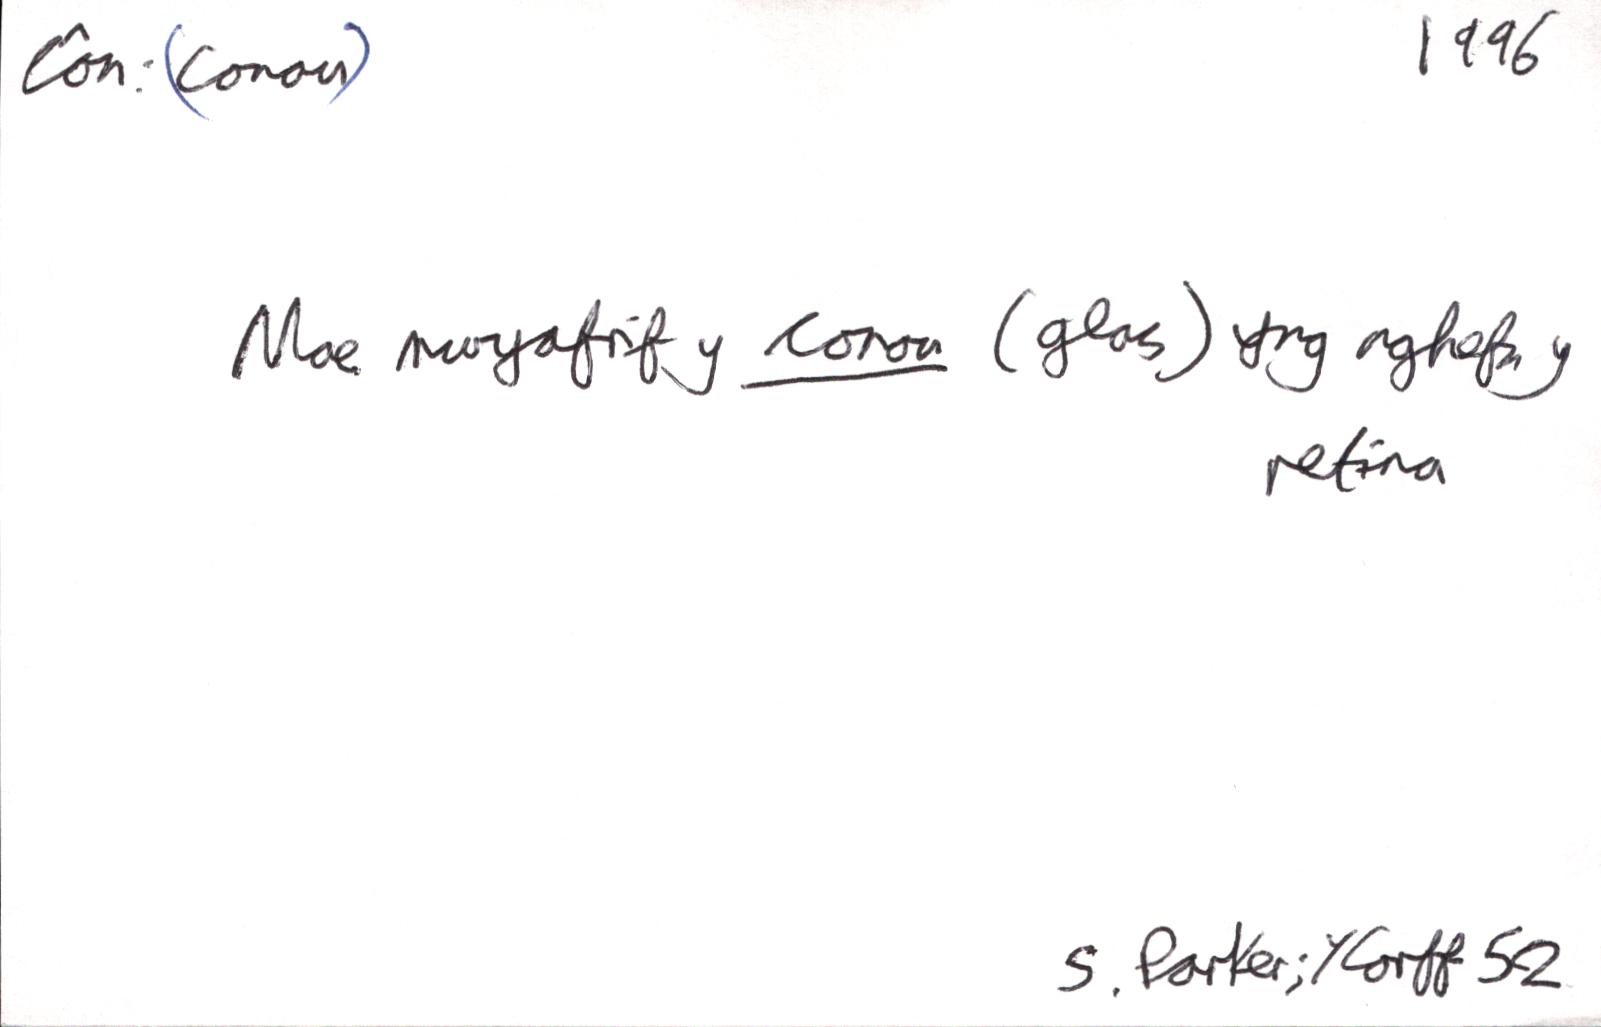 Côn: (conau) 1996
Mae mwyafrif y conau (glas) yng nghefn y
retina
S. Parker; Y Corff 52